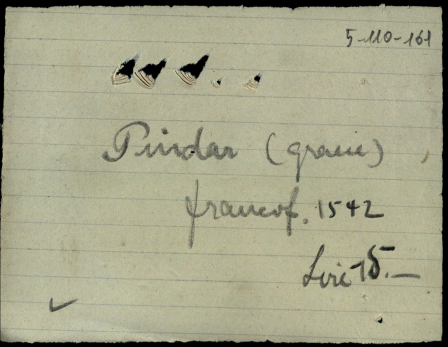 5-110-161
Pindar (graece)
francof. 1542
Lire 15.—